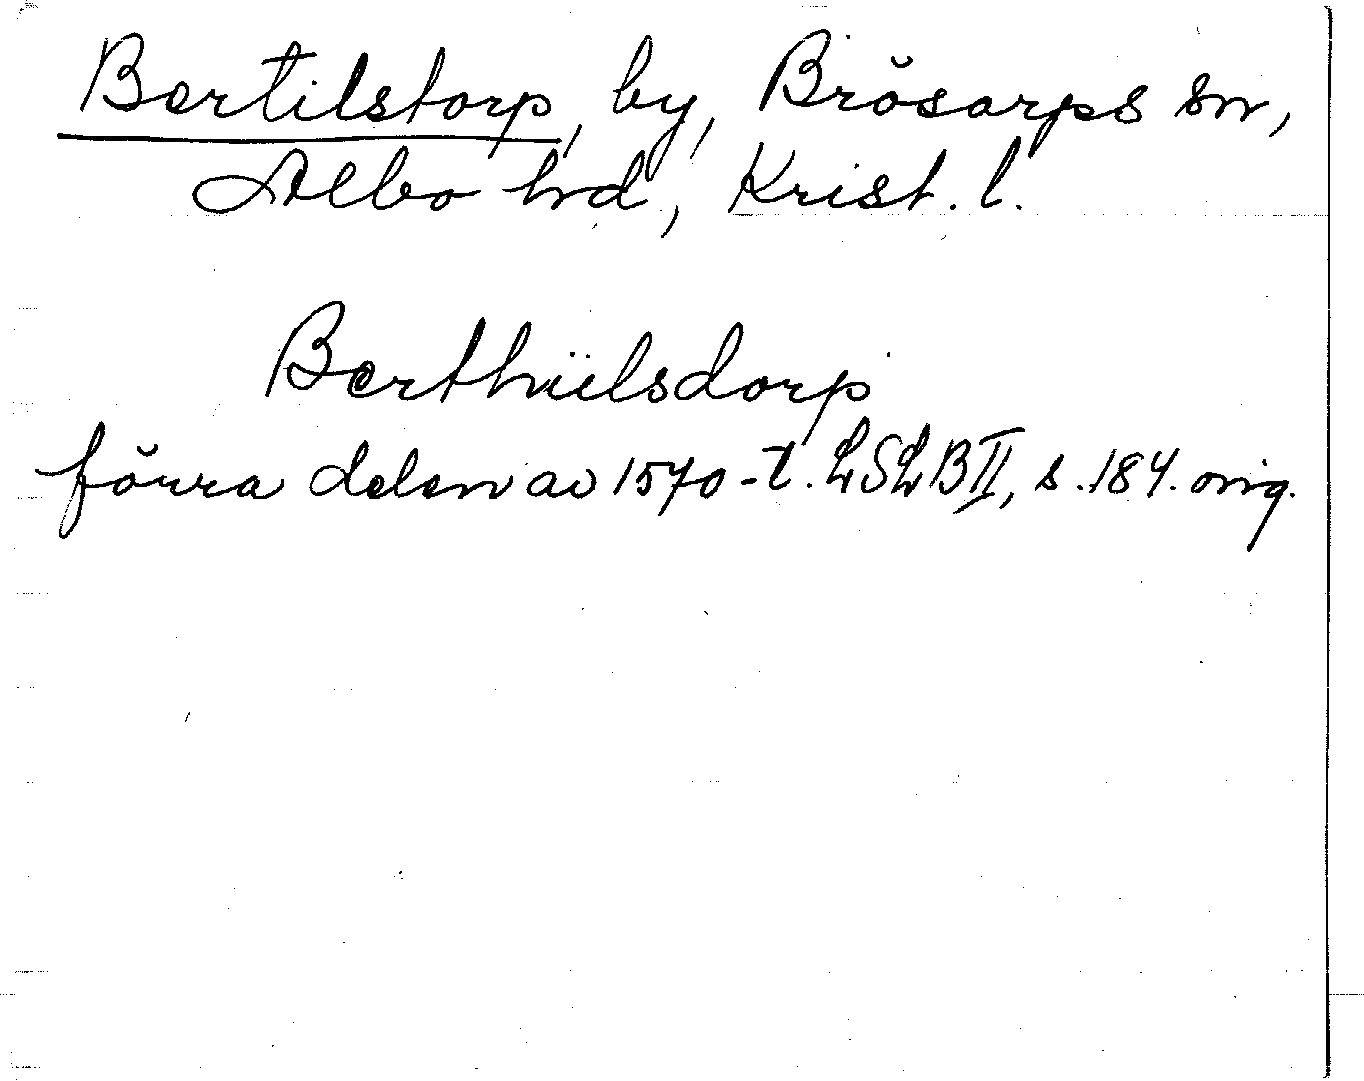 Bertilstorp, by, Brösarps sn,
Albo hrd, Krist. l.
Berthiilsdorp
förra delen av 1570-t. LSLB II, s. 184. orig.